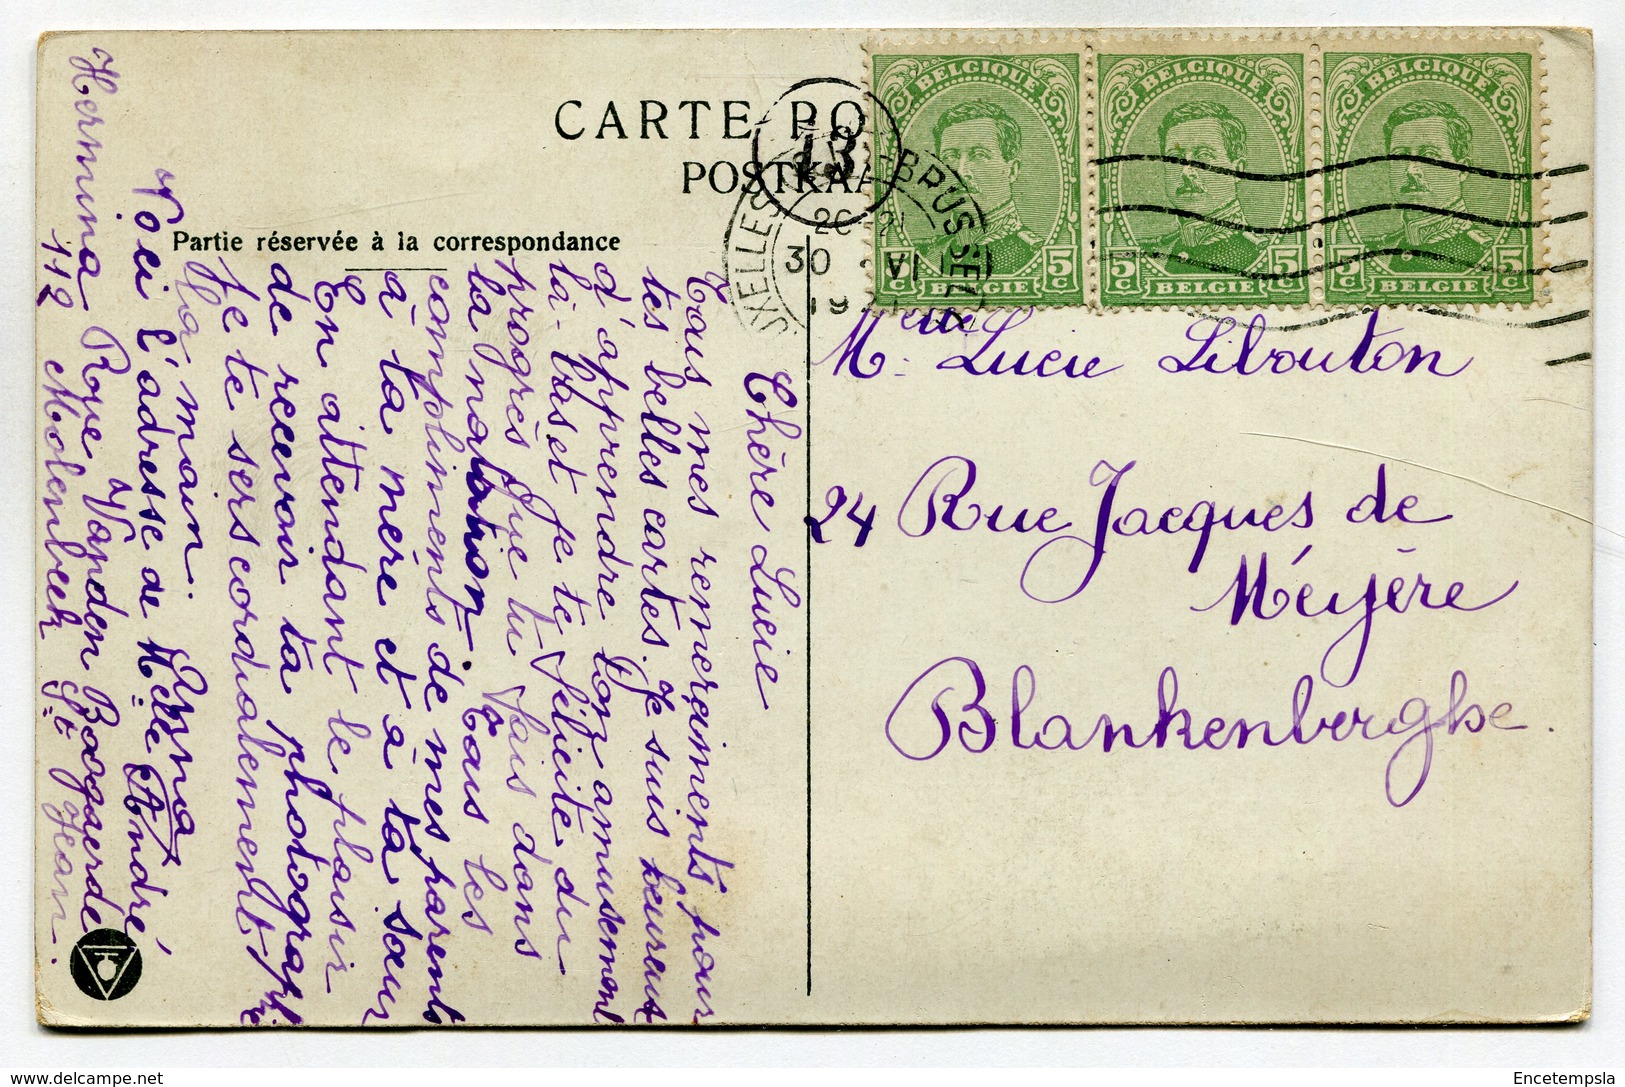 CARTE PO
POSTKAA
Partie réservée à la correspondance
13
BRUXELLES-BRUSSEL
20-21
30 VI
BELGIQUE
5c 5c
BELGIE
BELGIQUE
5c 5c
BELGIE
BELGIQUE
5c 5c
BELGIE
Melle Lucie Libouton
24 Rue Jacques de
Méyère
Blankenberghe.
Chère Lucie
Tous mes remerciments pour
tes belles cartes. Je suis heureuse
d'apprendre ton amusement
là-bas et je te félicite du
progrès que tu fais dans
la natation. Tous les
compliments de mes parents
à ta mère et à ta sœur
En attendant le plaisir
de recevoir ta photographie
je te sers cordialement
la main. Anna
Voici l'adresse de Melle André
Hermina Rue Vanden Boogaerde
112 Molenbeek St Jean.
Encetempsla